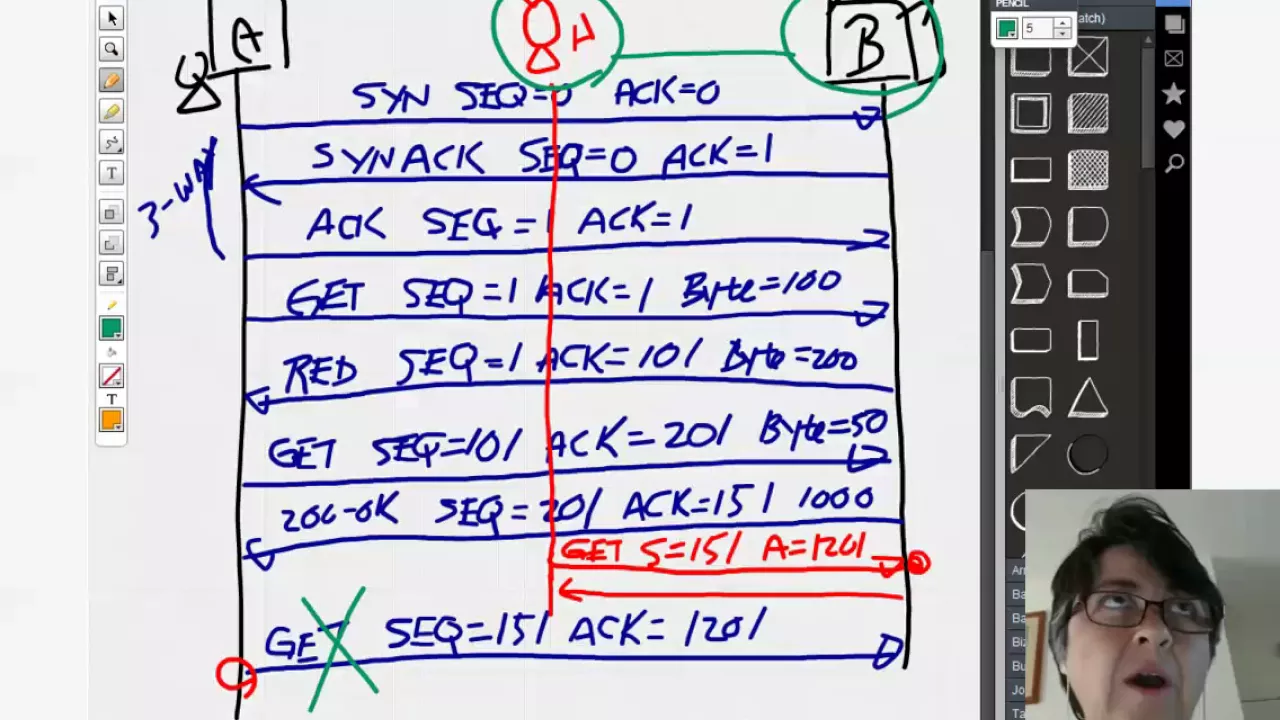 PENCIL
5
atch)
A
H
B
SYN SEQ=0 ACK=0
SYN ACK SEQ=0 ACK=1
3-WAY
ACK SEQ=1 ACK=1
GET SEQ=1 ACK=1 Byte=100
RED SEQ=1 ACK=101 Byte=200
GET SEQ=101 ACK=201 Byte=50
200-OK SEQ=201 ACK=151 1000
GET S=151 A=1201
GET SEQ=151 ACK=1201
T
T
Ar
Ba
Ba
Bi
Bu
Jo
Ta